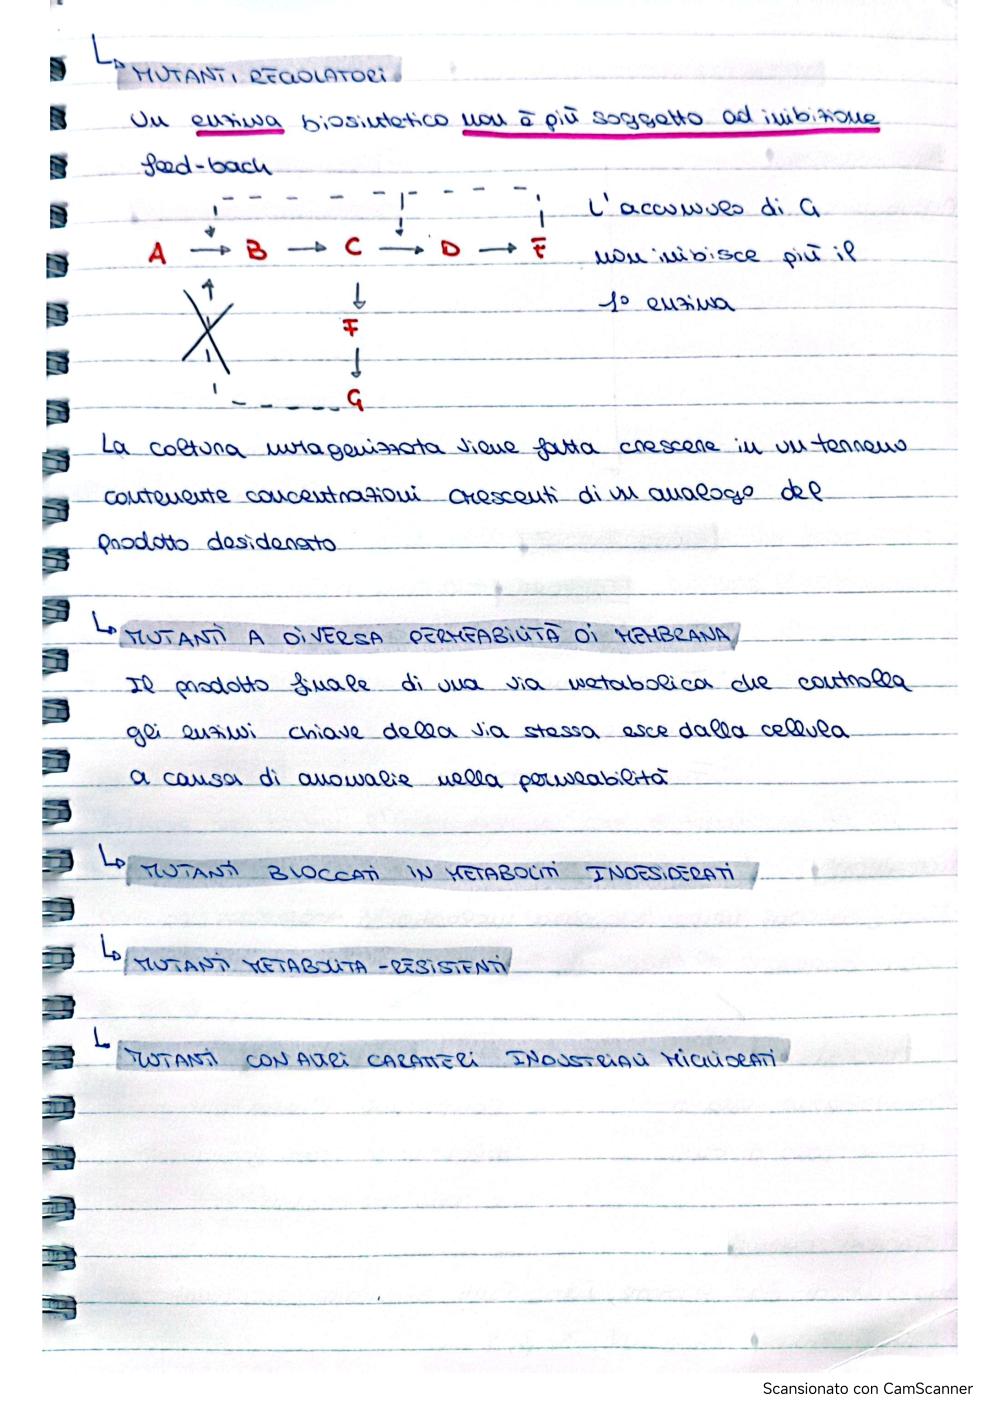 MUTANTI REGOLATORI
Un enzima biosintetico non è più soggetto ad inibizione
feed-back
L'accumulo di G
A → B → C → D → E
non inibisce più il
1° enzima
F
G
La coltura mutagenizzata viene fatta crescere in un terreno
contenente concentrazioni crescenti di un analogo del
prodotto desiderato
MUTANTI A DIVERSA PERMEABILITÀ DI MEMBRANA
Il prodotto finale di una via metabolica che controlla
gli enzimi chiave della via stessa esce dalla cellula
a causa di anomalie nella permeabilità
MUTANTI BLOCCATI IN METABOLITI INDESIDERATI
MUTANTI METABOLITA-RESISTENTI
MUTANTI CON ALTRI CARATTERI INDUSTRIALI MIGLIORATI
Scansionato con CamScanner